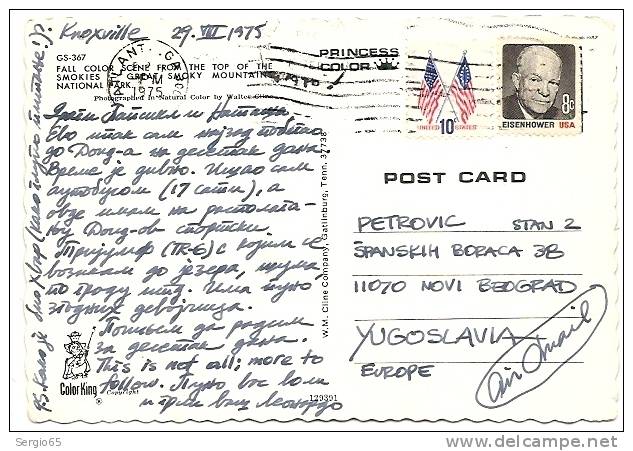 Knoxville 29. VIII 1975
GS-367
FALL COLOR SCENE FROM THE TOP OF THE
SMOKIES GREAT SMOKY MOUNTAINS
NATIONAL PARK
Photographed in Natural Color by Walter Cline
PRINCESS
COLOR
ATLANTA, GA
PM
1975
10¢
UNITED STATES
8¢
EISENHOWER USA
Драги и Наташа
Ево ипак сам најзад
до Донд-а на десетак дана
Време је дивно. Ишао сам
аутобусом (17 сати), а
овде имам на располага-
њу Донд-ов спортски
Тријумф (TR-6) с којим се
возикам до језера, шума
по граду итд. Има пуно
згодних девојчица.
да радим
за десетак дана.
This is not all; more to
follow. Пуно вас воли
и грли ваш Леонардо
P.S. Како је било
W.M. Cline Company, Gatlinburg, Tenn. 37738
POST CARD
PETROVIC STAN 2
ŠPANSKIH BORACA 3B
11070 NOVI BEOGRAD
YUGOSLAVIA
EUROPE
air mail
Color King
®
Copyright
129391
Sergio65
www.delcampe.net